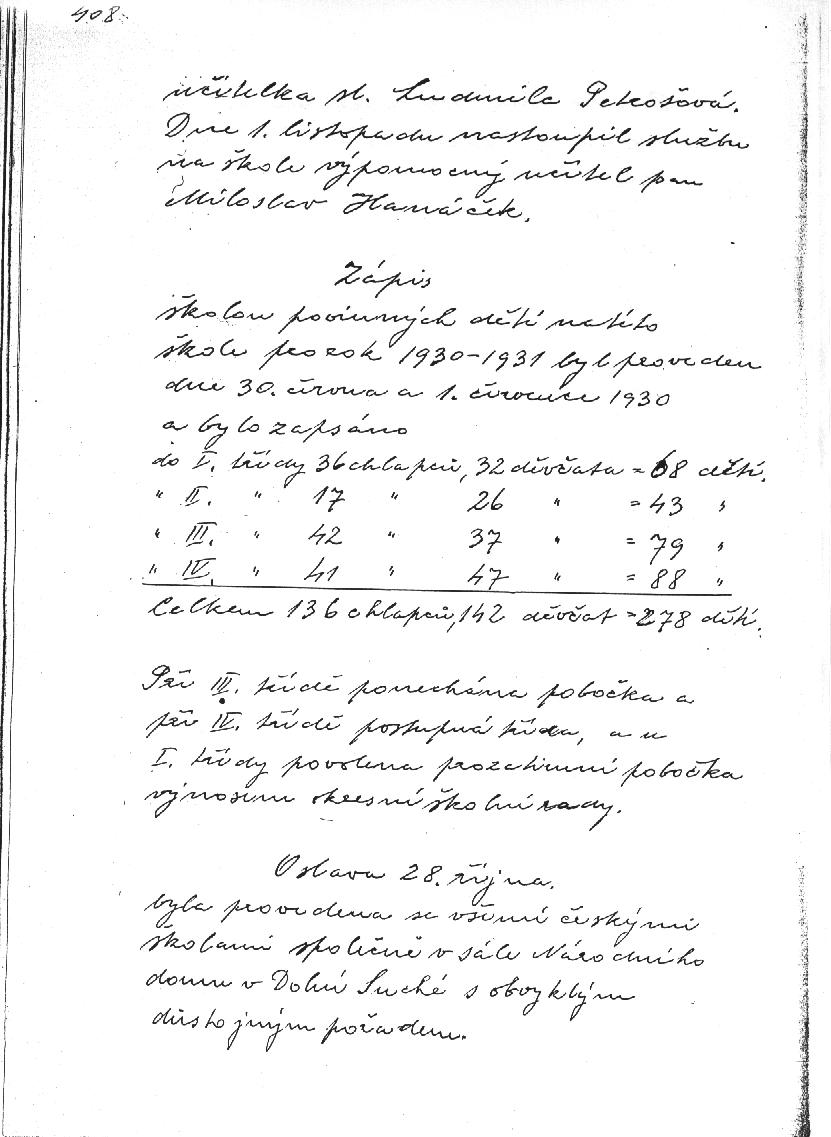 408.
učitelka sl. Ludmila Petrošová.
Dne 1. listopadu nastoupil službu
na škole výpomocný učitel pan
Miloslav Hanáček.
Zápis
školou povinných dětí na této
škole pro rok 1930-1931 byl proveden
dne 30. června a 1. července 1930
a bylo zapsáno
do I. třídy 36 chlapců, 32 děvčata = 68 dětí.
" II. " 17 " 26 " = 43 "
" III. " 42 " 37 " = 79 "
" IV. " 41 " 47 " = 88 "
Celkem 136 chlapců, 142 děvčat = 278 dětí.
Při III. třídě ponechána pobočka a
při IV. třídě postupná třída, a u
I. třídy povolena prozatimní pobočka
výnosem okresní školní rady.
Oslava 28. října.
byla provedena se všemi českými
školami společně v sále Národního
domu v Dolní Suché s obvyklým
důstojným pořadem.